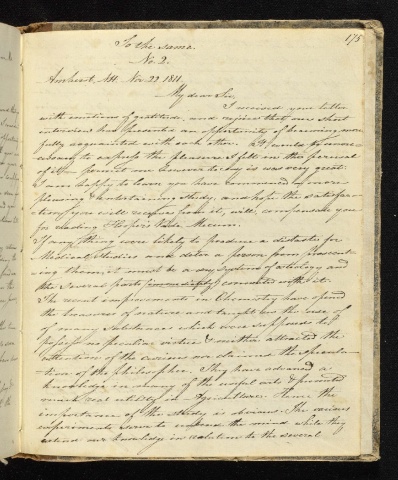 175
To the same.
No. 2.
Amherst, NH. Nov. 22 1811.
My dear Sir,
I received your letter
with emotions of gratitude, and rejoice that our short
interview had presented an opportunity of becoming more
fully acquainted with each other. It would be
to express the pleasure I felt in the perusal
of it permit me however to say is was very great.
I am happy to learn you have commenced a more
pleasing & entertaining study, and hope the satisfac-
tion you will receive from it, will compensate you
for reading Hooper's Vade Mecum.
If any thing were likely to produce a distaste for
Medical Studies and deter a person from prosecut-
ing them, it must be a dry system of and
the several parts immediately connected with it.
The recent improvements in Chemistry have opened
the treasures of nature and taught us the uses of
of many substances which were supposed to
possess no peculiar virtue & neither attracted the
attention of the curious nor claimed the specula-
tion of the philosopher. They have advanced a
knowledge in many of the useful arts & promoted
much real utility in Agriculture. Hence the
importance of the study is obvious. The various
experiments serve to the mind while they
extend our knowledge in relation to the several